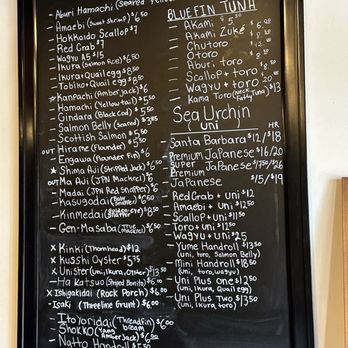 - Aburi Hamachi (Seared Yellow
- Amaebi (Sweet shrimp) $6.50
- Hokkaido Scallop $7
- Red Crab $7
- Wagyu A5 $15
- Ikura (Salmon Roe) $6
- Ikura + Quail egg $8
- Tobiko + Quail egg
* Kanpachi (Amberjack) $6
- Hamachi (Yellowtail)
- Gindara (Black Cod) $5.50
- Salmon Belly (Seared)
- Scottish Salmon $5.50
OUT Hirame (Flounder) $5
- Engawa (Flounder Fin) $6
* Shima Aji (Striped Jack)
OUT Ma Aji (JPN Mackrel)
- Madai (JPN Red Snapper)
- Kasugodai (Baby Snapper)
- Kinmedai (Golden-eye Snapper)
- Gen-Masaba
x Kinki (Thornhead) $12
x Kusshi Oyster
x Unister (Uni, Ikura, Oyster)
- Ha Katsuo (Striped Bonito)
x Ishigakidai (Rock Porch) $6
- Isaki (Threeline Grunt) $6
- Itoyoridai (Threadfin bream)
- Shokko (Young Amber Jack) $6.00
- Natto Handroll
BLUEFIN TUNA
- Akami
- Akami Zuké
- Chutoro
- Otoro
- Aburi toro
- Scallop + toro
- Wagyu + toro
- Kama Toro
Sea Urchin
(uni) HR
- Santa Barbara $12/$18
- Premium Japanese $16/20
- Super Premium Japanese
$15/$19
- Red Crab + uni
- Amaebi + uni
- Scallop + uni
- Toro + uni
- Wagyu + uni $25
- Yume Handroll
(uni, toro, Salmon Belly)
- Mini Handroll
(uni, toro, wagyu)
- Uni Plus One
(uni, Ikura, Quail egg)
- Uni Plus Two
(uni, Ikura, toro)